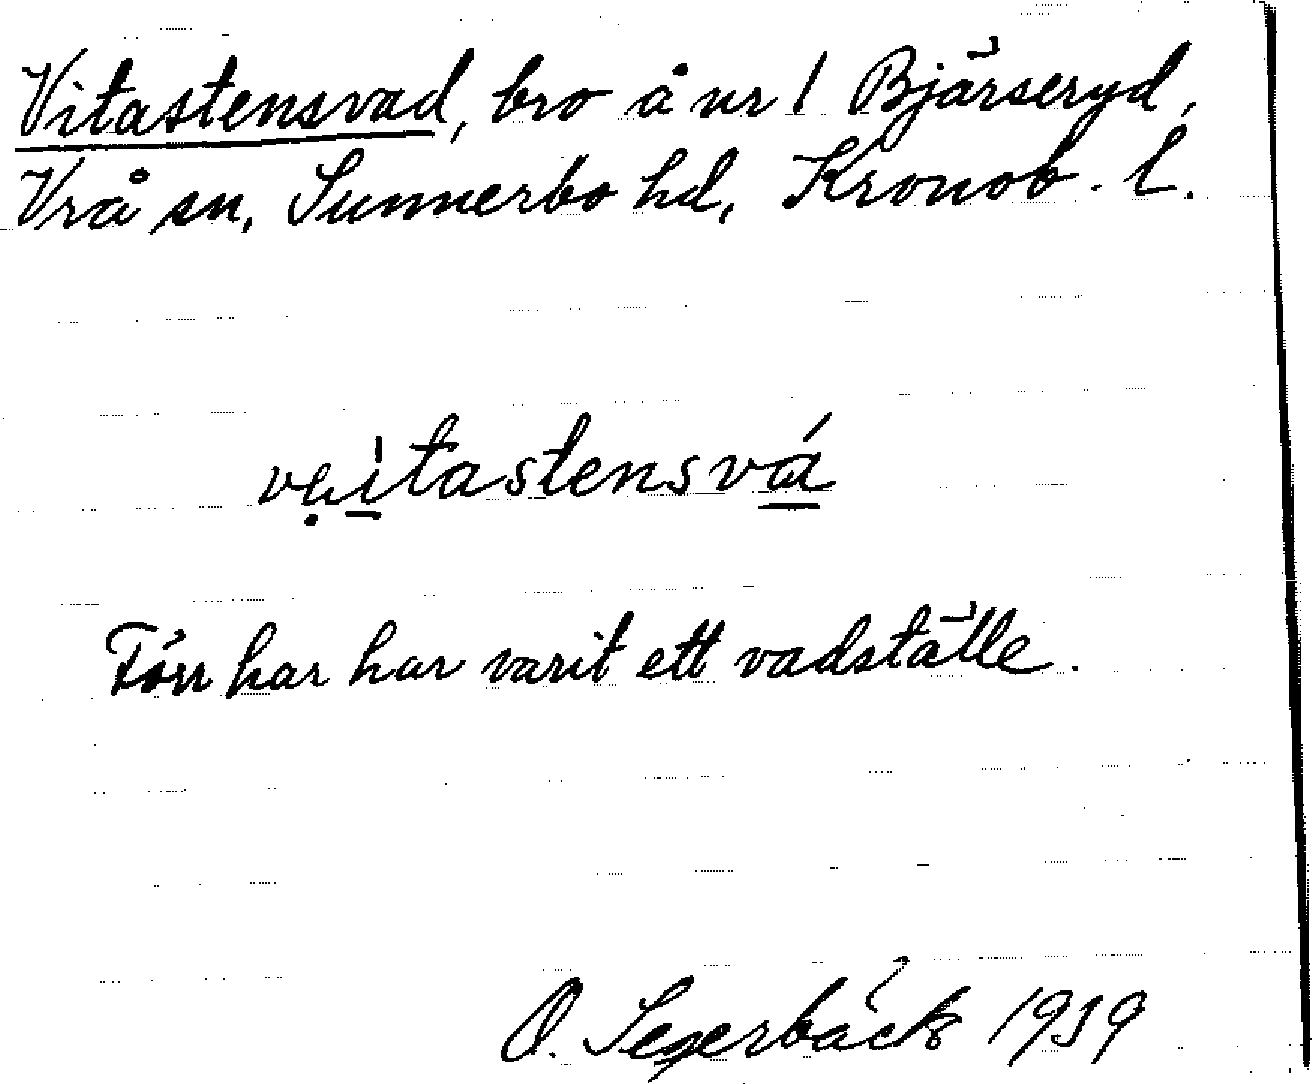 Vitastensvad, bro å nr 1 Bjärseryd,
Vrå sn, Sunnerbo hd, Kronob. l.
vẹi̲tastensvá̲
Förr har har varit ett vadställe.
O. Segerbäck 1939